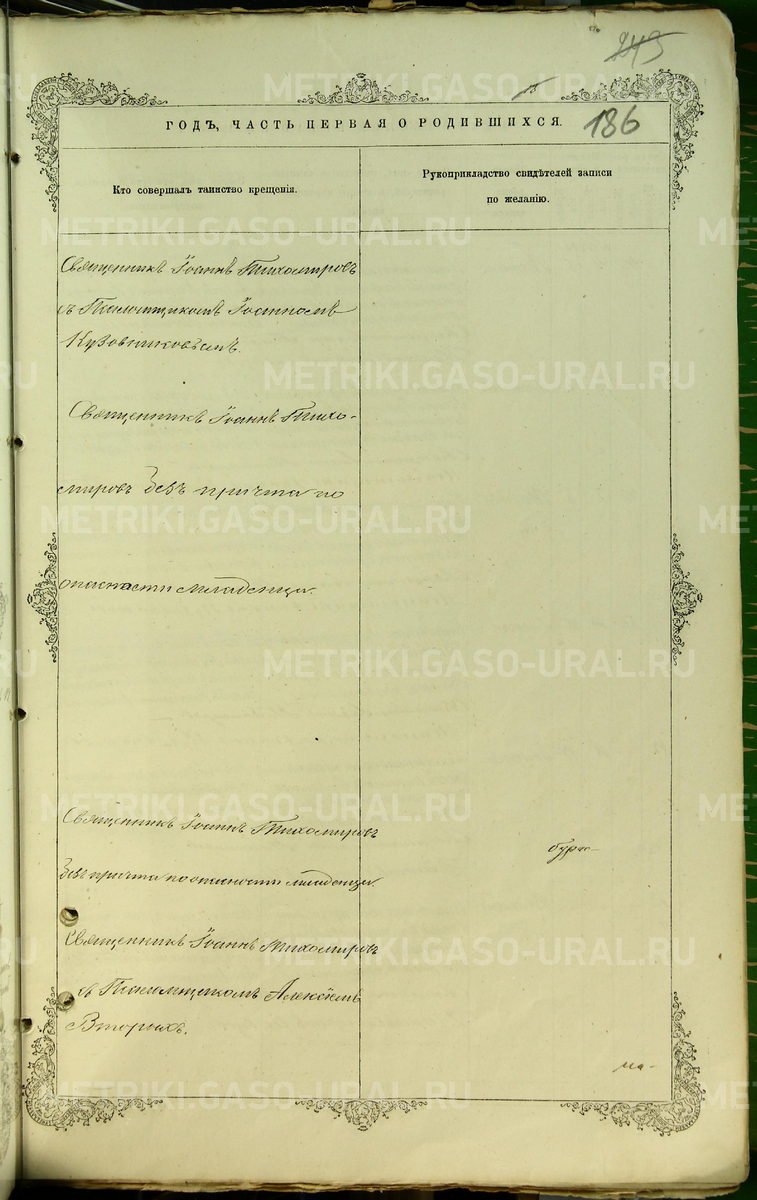 243
186
ГОДЪ, ЧАСТЬ ПЕРВАЯ О РОДИВШИХСЯ.
Кто совершалъ таинство крещенія.
Рукоприкладство свидѣтелей записи
по желанію.
Священникъ Іоаннъ Тихомировъ
съ Іоанномъ
Кузовниковымъ.
Священникъ Іоаннъ Тихо-
мировъ безъ причта по
опасности младенца.
Священникъ Іоаннъ Тихомировъ
безъ причта по опасности младенца.
Священникъ Іоаннъ Тихомировъ
съ Алексѣемъ
Вторыхъ.
METRIKI.GASO-URAL.RU